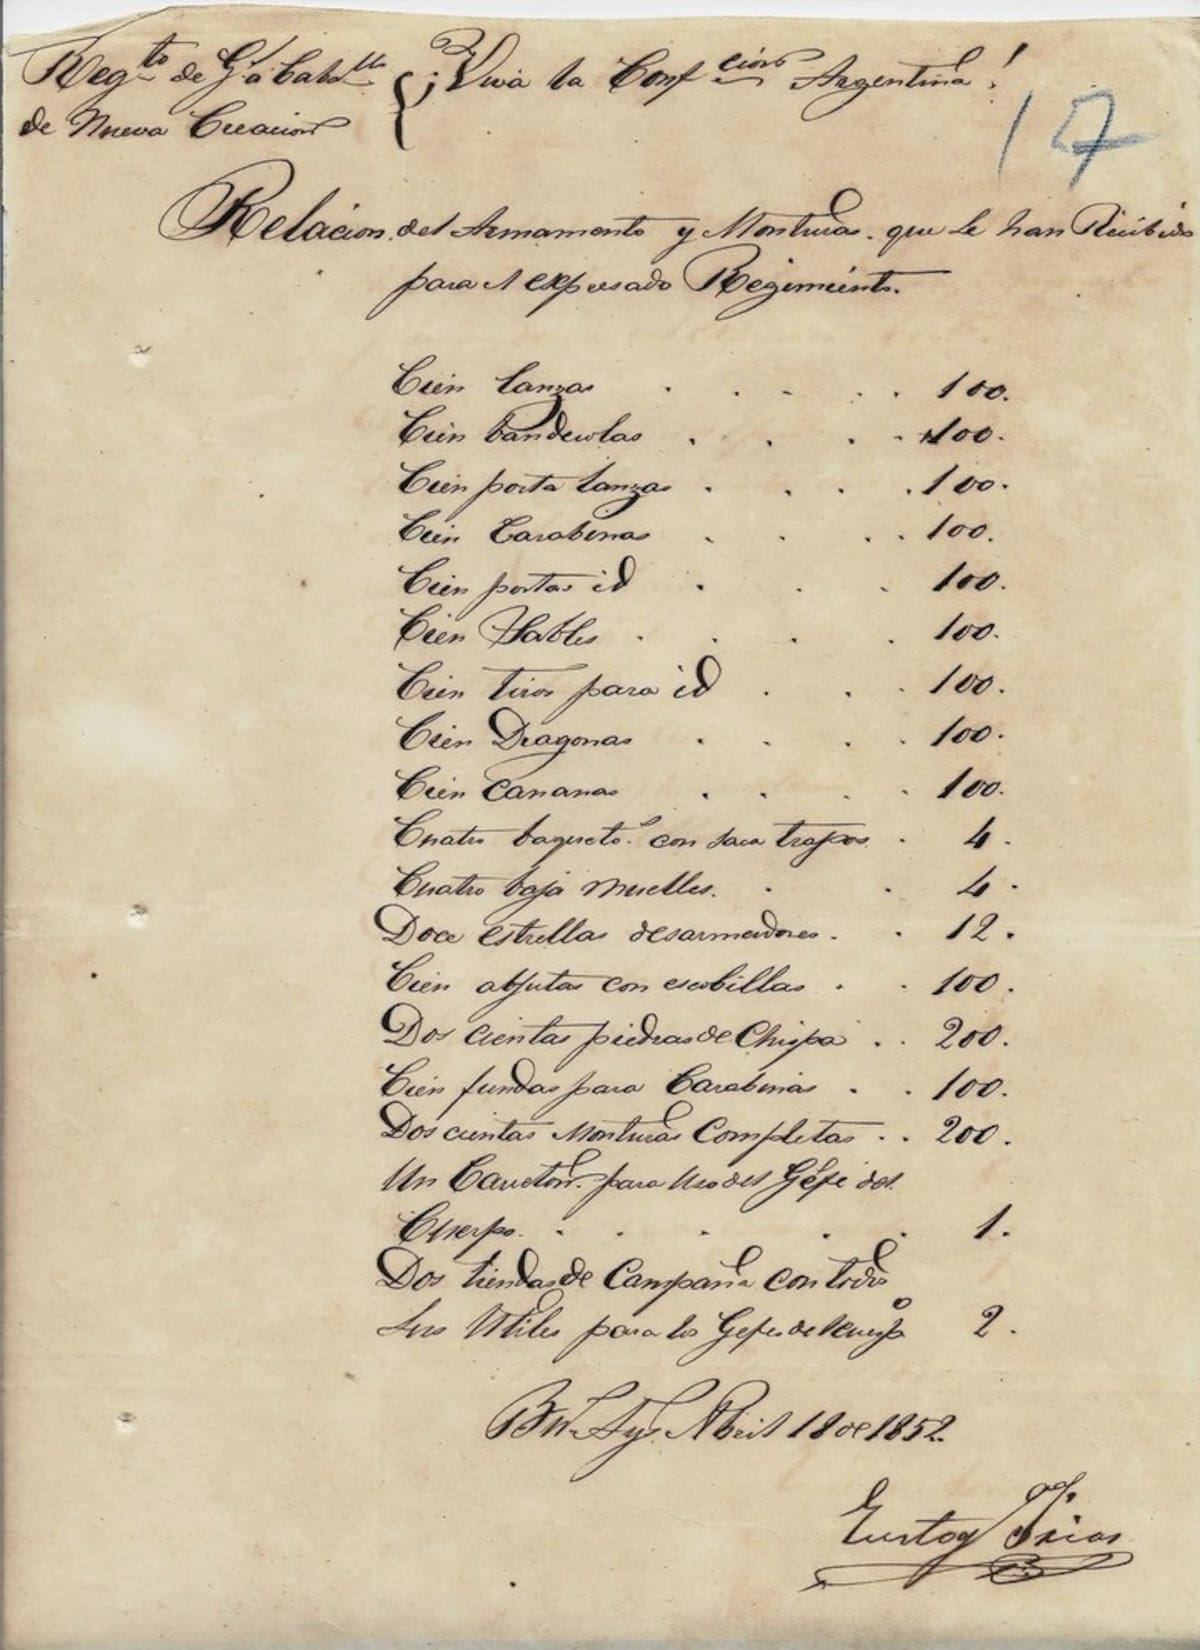 Regto de G. a Caballa
de Nueva Creacion
¡Viva la Confcion Argentina!
17
Relacion del Armamento y Monturas que se han Recibido
para el expresado Regimiento.
Cien lanzas . . . . . 100.
Cien banderolas . . . . 100.
Cien porta lanzas . . . . 100.
Cien Carabinas . . . . 100.
Cien portas id . . . 100.
Cien Sables . . . . 100.
Cien tiros para id . . . 100.
Cien Dragonas . . . . 100.
Cien Cananas . . . . 100.
Cuatro baquets. con saca trapos. . 4.
Cuatro baja muelles. . . 4.
Doce estrellas desarmadores. . 12.
Cien abjutas con escobillas . . 100.
Dos cientas piedras de Chispa . . 200.
Cien fundas para Carabinas . . 100.
Dos cientas Monturas Completas . . 200.
Un Carreton para Uso del Géfe del
Cuerpo. . . . . . 1.
Dos tiendas de Campaña con todos
Sus Utiles para los Gefes de Cuerpo 2.
Bs. Ays. Abril 18 de 1852.
Eustoqo Frias